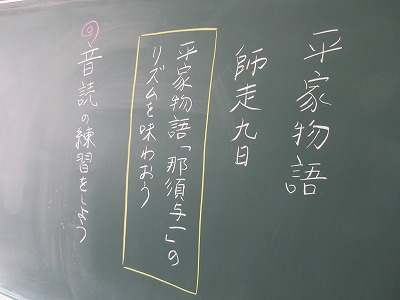 平家物語
師走九日
平家物語「那須与一」の
リズムを味わおう
◎音読の練習をしよう